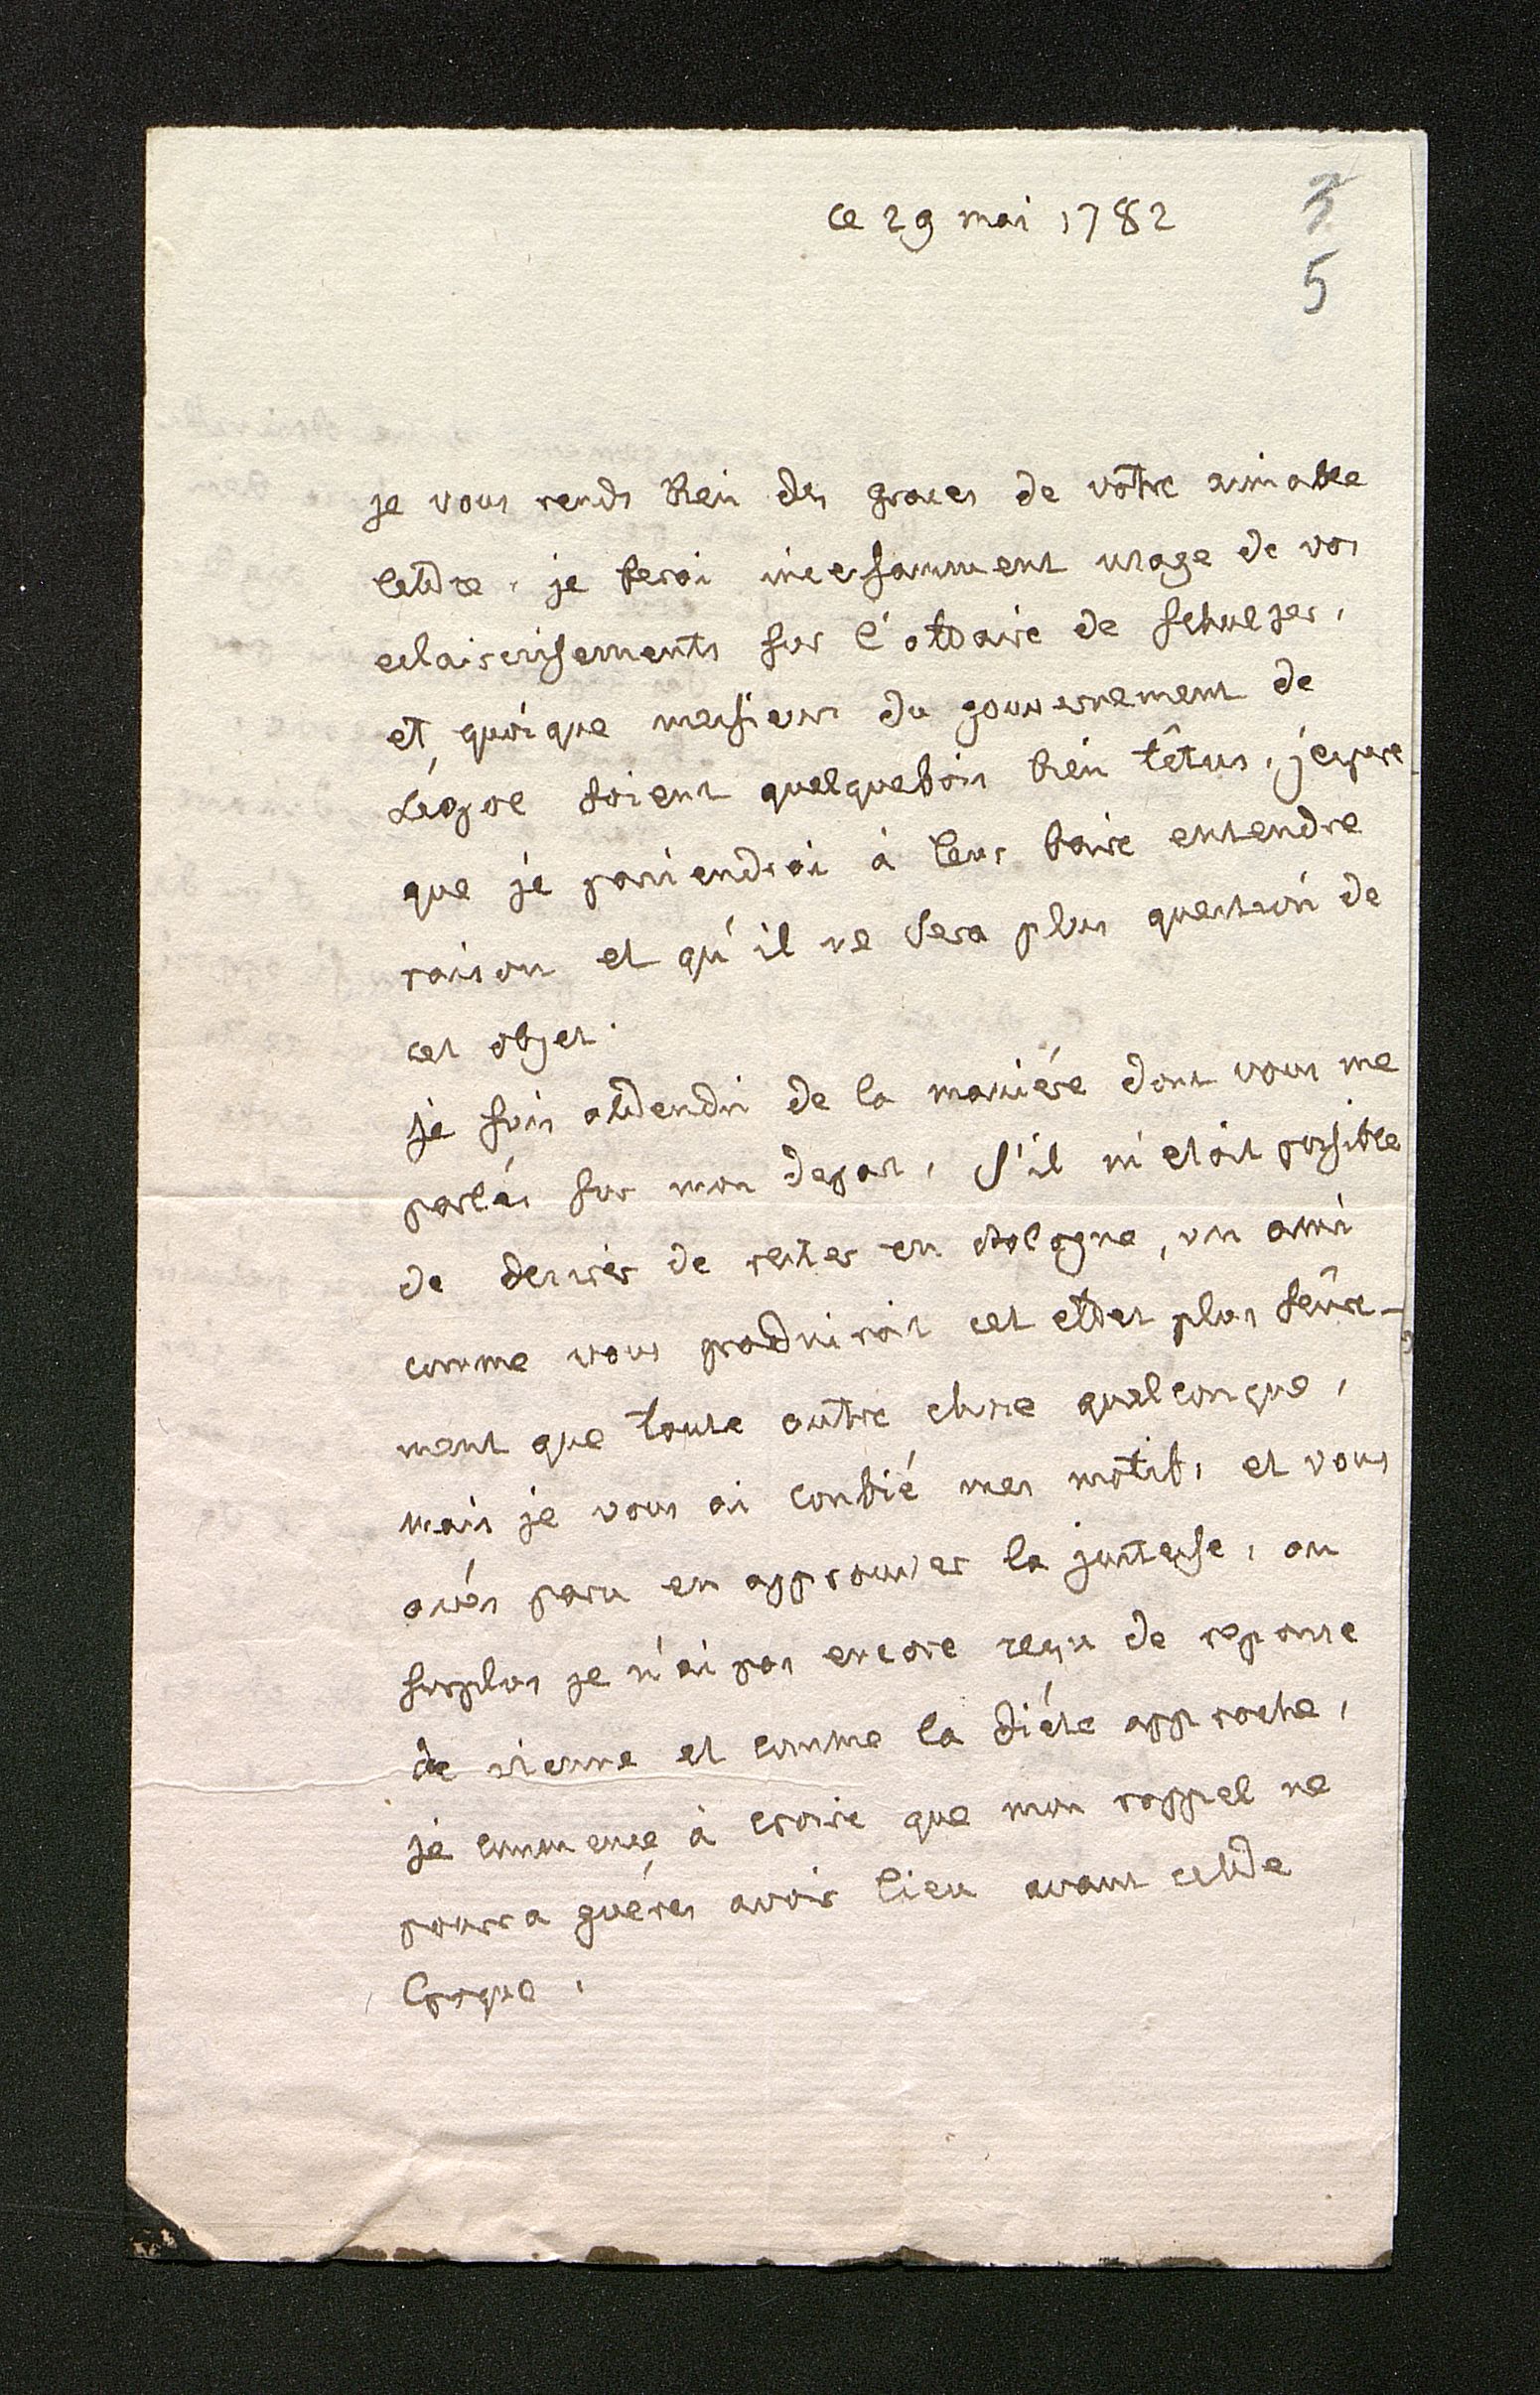 ce 29 mai 1782
3
5
je vous rends bien des graces de vôtre aimable
lettre. je ferai incessamment usage de vos
eclaircissements sur l'affaire de Schulzer,
et quoique messieurs du gouvernement de
Léopol soient quelquefois bien têtus, j'espere
que je parviendrai à leur faire entendre
raison et qu'il ne sera plus question de
cet objet.
je suis attendri de la maniére dont vous me
parlés sur mon depart, s'il m'etoit possible
de desirer de rester en Pologne, un ami
comme vous produiroit cet effet plus seûre-
ment que toute autre chose quelconque,
mais je vous ai confié mes motifs et vous
avés paru en approuver la justesse, au
surplus je n'ai pas encore reçu de reponse
de vienne et comme la diéte approche,
je commence à croire que mon rappel ne
pourra guéres avoir lieu avant cette
Epoque.